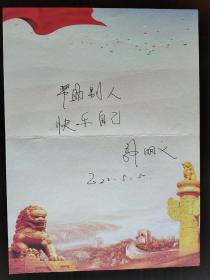 帮助别人
快乐自己
郭明义
2022.5.5